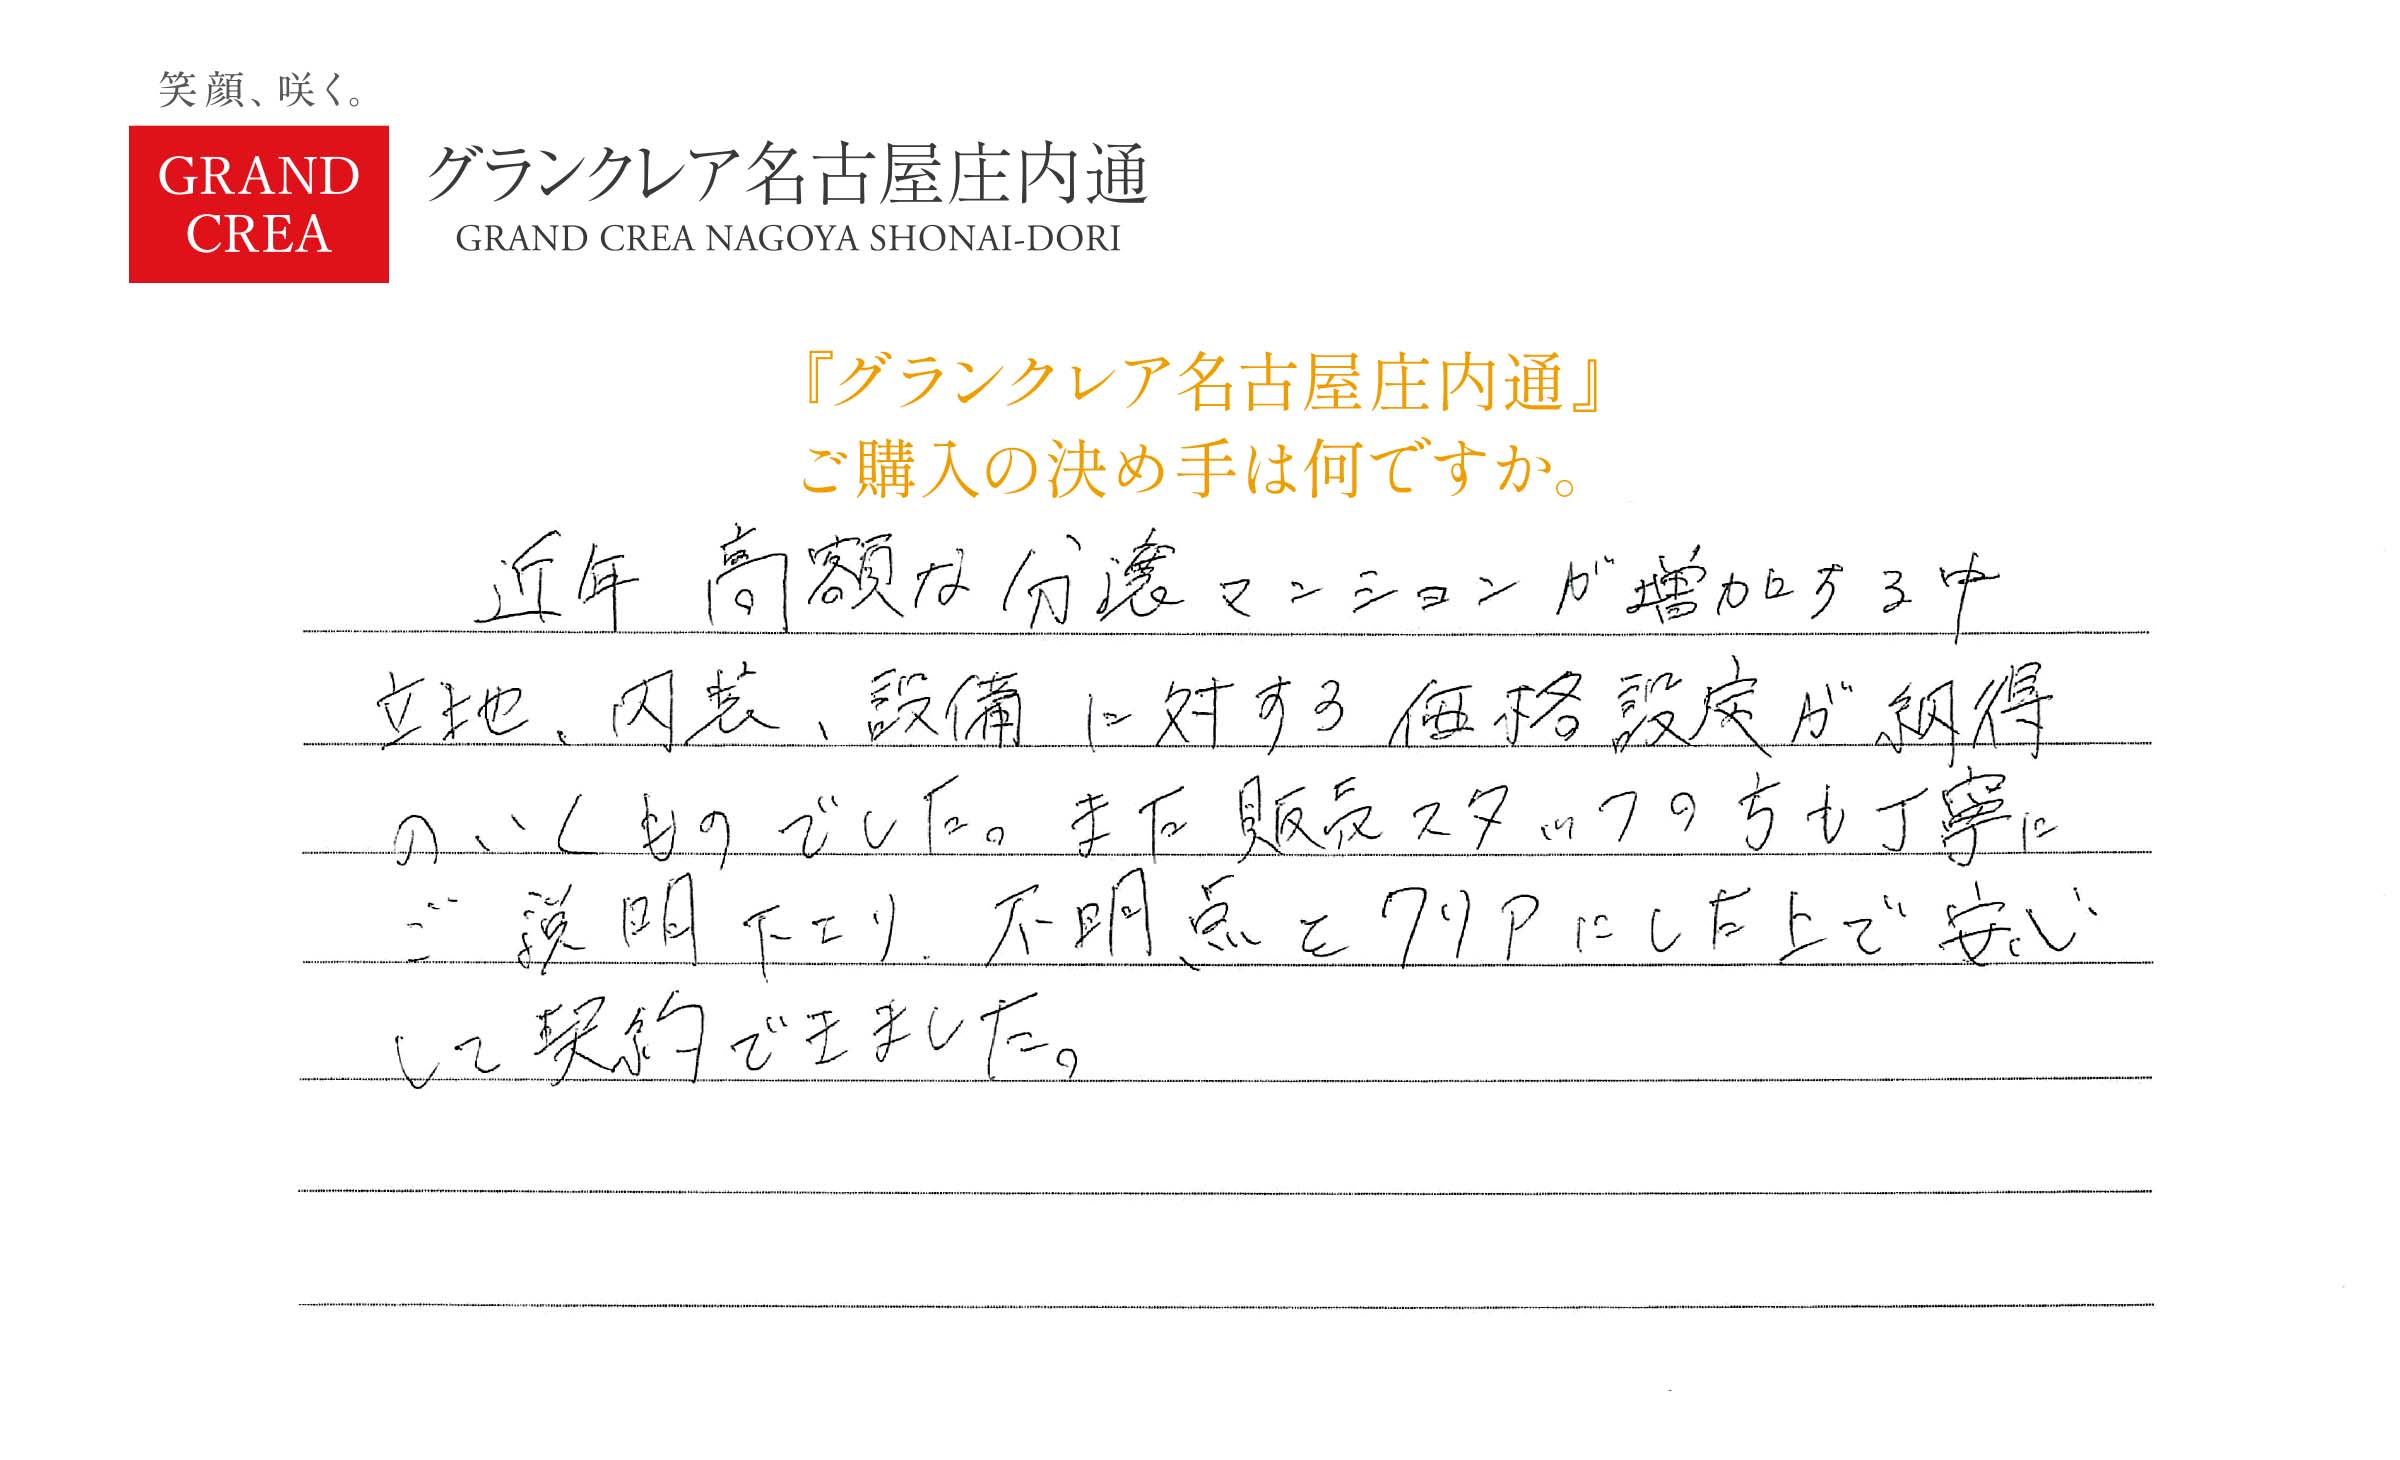 笑顔、咲く。
GRAND
CREA
グランクレア名古屋庄内通
GRAND CREA NAGOYA SHONAI-DORI
『グランクレア名古屋庄内通』
ご購入の決め手は何ですか。
近年 高額な分譲マンションが増加する中
立地、内装、設備に対する価格設定が納得
のいくものでした。また販売スタッフの方も丁寧に
ご説明下さり、不明点をクリアにした上で安心
して契約できました。